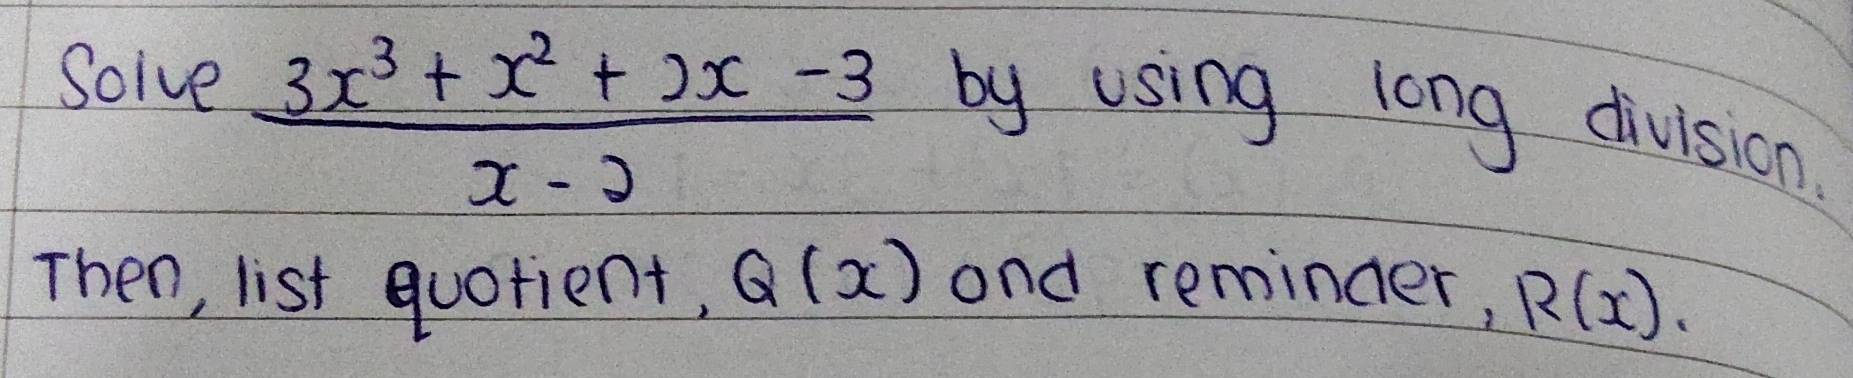 Solve 3x³ + x² + 2x - 3 by using long division.
x - 2
Then, list quotient, Q(x) and reminder, R(x).